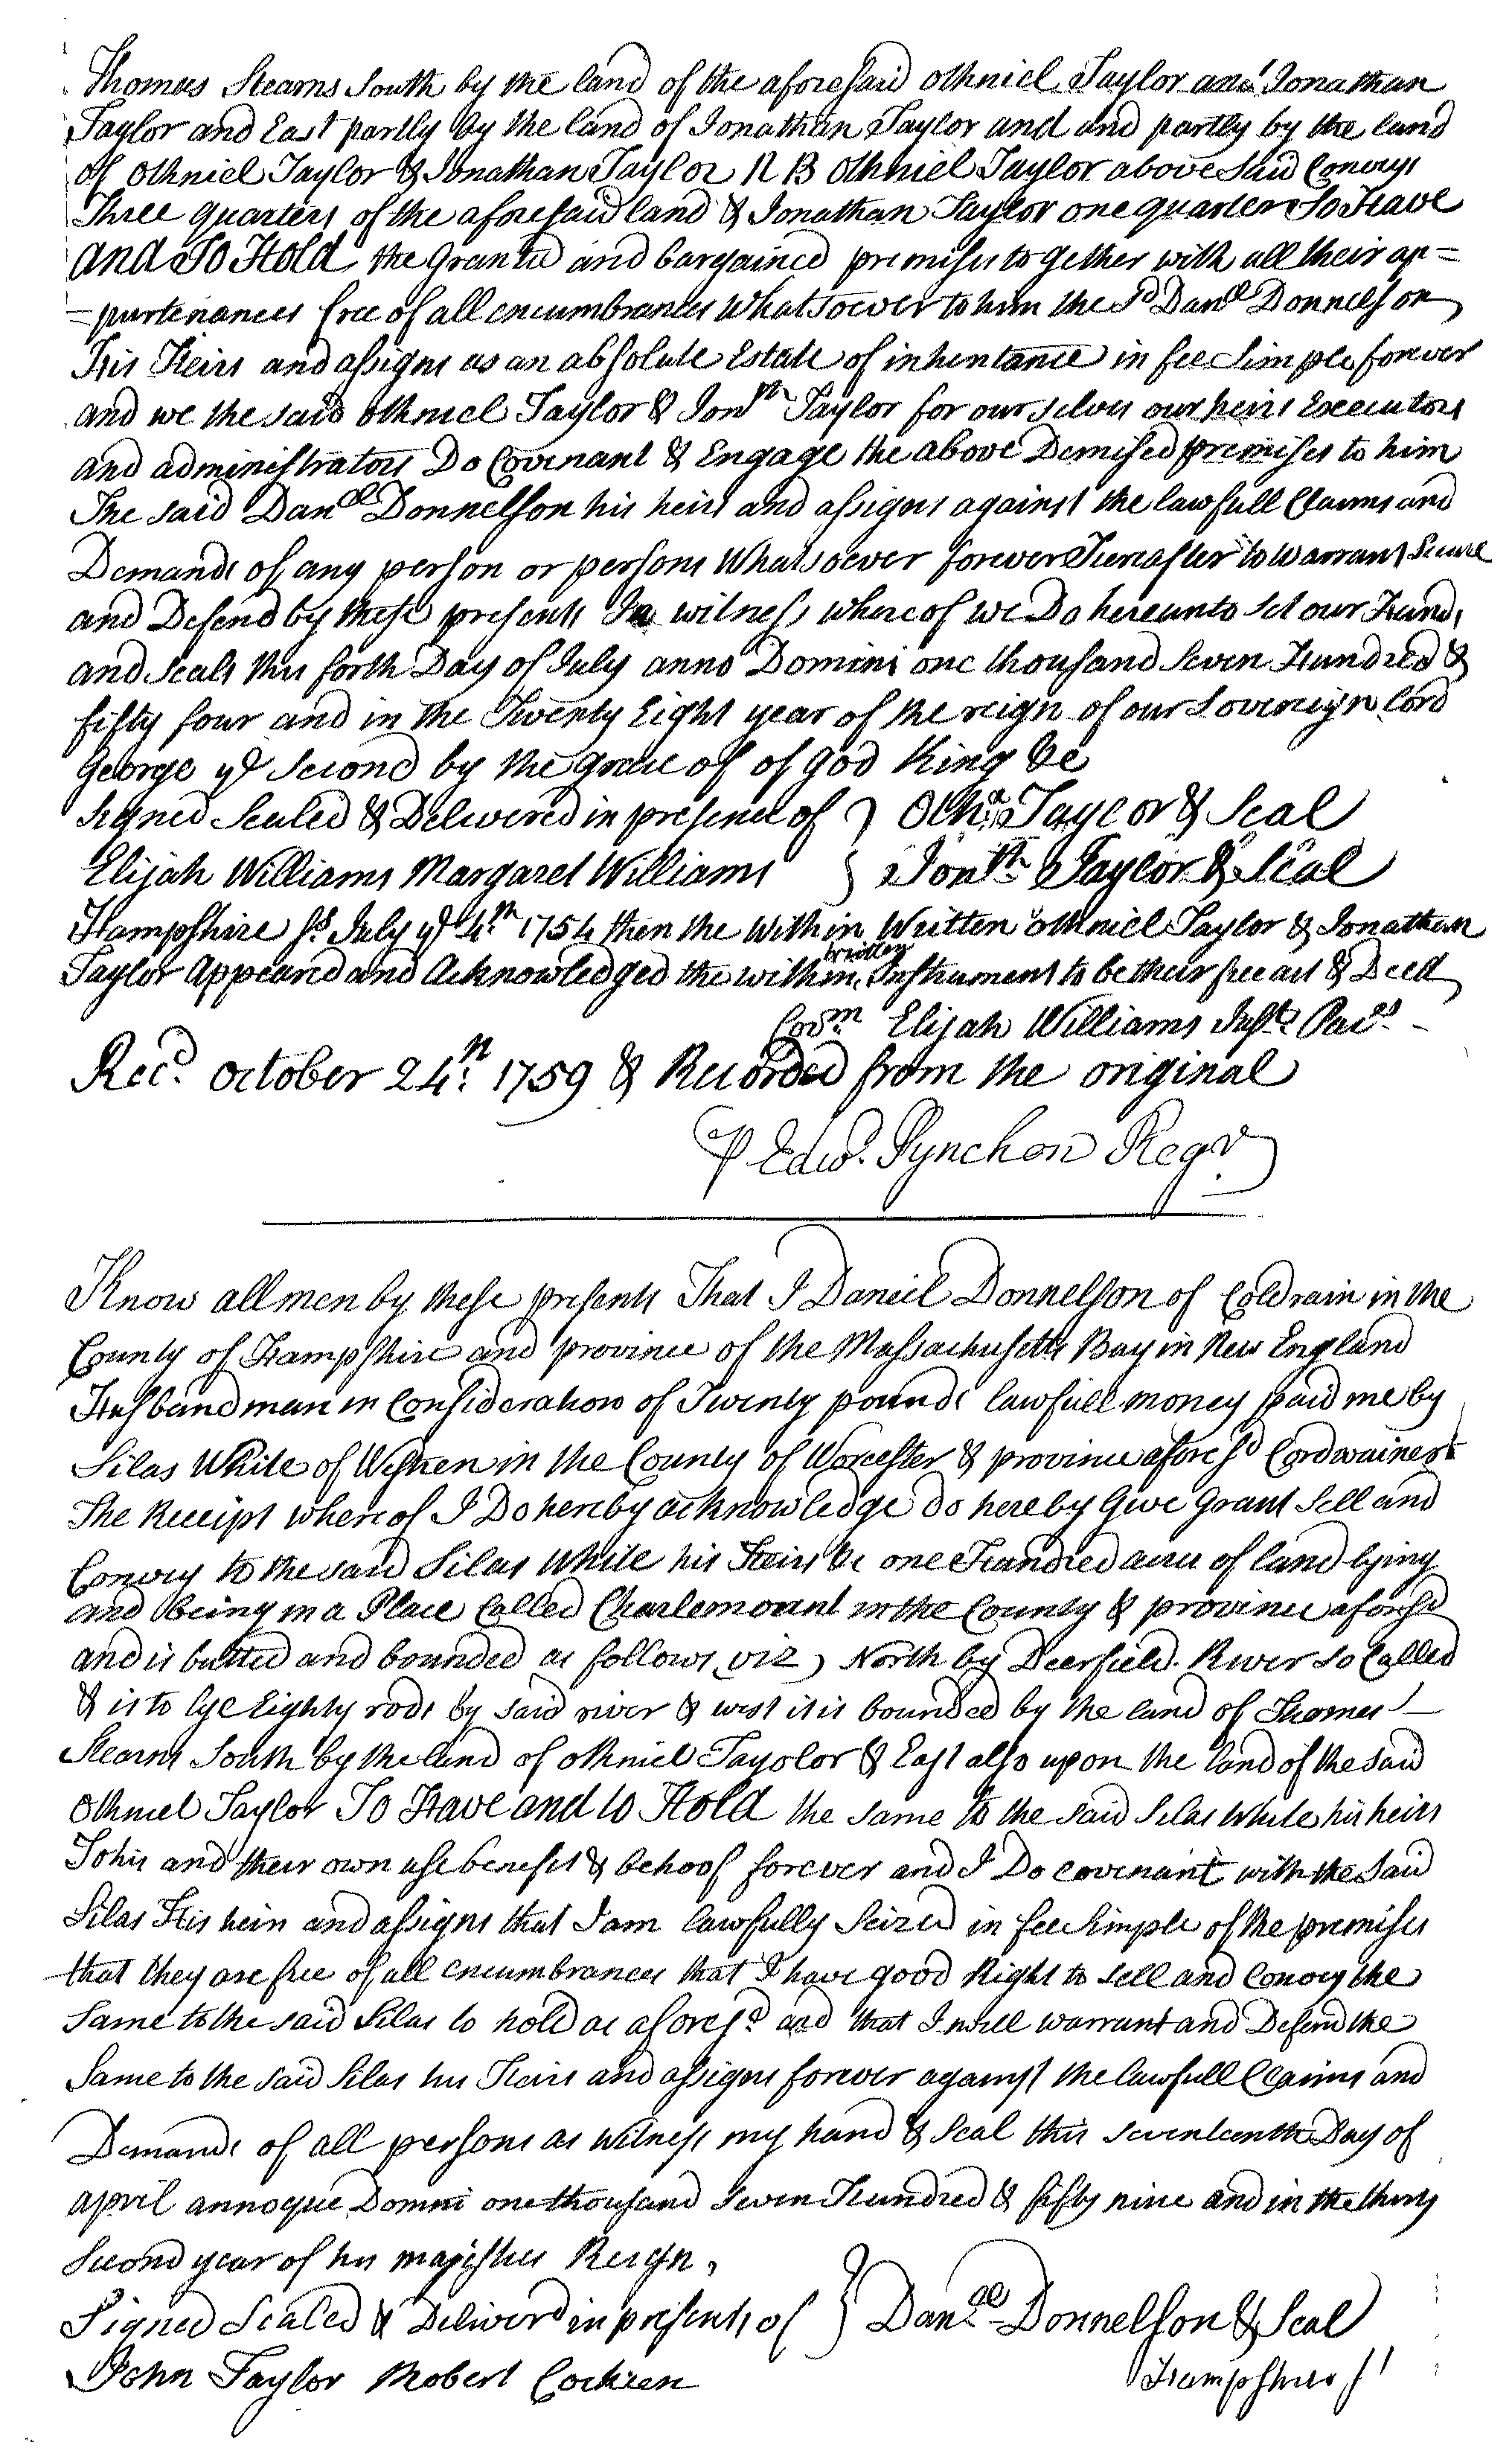 Thomas Stearns South by the land of the aforesaid Othniel Taylor and Jonathan
Taylor and East partly by the land of Jonathan Taylor and and partly by the land
of Othniel Taylor & Jonathan Taylor N B Othniel Taylor above said Conveys
Three quarters of the aforesaid land & Jonathan Taylor one quarter To Have
and To Hold the Granted and bargained premises together with all their ap=
=purtenances free of all encumbrances Whatsoever to him the sd Danll Donnelson
His Heirs and assigns as an absolute Estate of inheritance in fee Simple forever
and we the said Othniel Taylor & Jonth Taylor for our selves our heirs Executors
and administrators Do Covenant & Engage the above Demised premises to him
The said Danll Donnelson his heirs and assigns against the lawfull Claims and
Demands of any person or persons Whatsoever forever Hereafter to warrant Secure
and Defend by these presents In witness whereof we Do hereunto Set our Hands
and Seals this forth Day of July anno Domini one thousand Seven Hundred &
fifty four and in the Twenty Eight year of the reign of our Sovereign Lord
George ye Second by the grace of of god King &c
Signed Sealed & Delivered in presence of } Othn Taylor & Seal
Elijah Williams Margaret Williams } Jonth Taylor & Seal
Hampshire Ss July ye 4th 1754 then the within Written Othniel Taylor & Jonathan
Taylor Appeared and Acknowledged the within written Instrument to be their free act & Deed
Corm Elijah Williams Just Pacs
Recd. October 24th: 1759 & Recorded from the original
P Edwd. Pynchon Regr
Know all men by these presents That I Daniel Donnelson of Coldrain in the
County of Hampshire and province of the Massachusetts Bay in New England
Husbandman in Consideration of Twenty pounds lawfull money paid me by
Silas White of in the County of Worcester & province aforesd Cordwainer
The Receipt whereof I Do hereby acknowledge do hereby Give Grant Sell and
Convey to the said Silas White his Heirs &c one Hundred acres of land lying
and being in a Place Called Charlemount in the County & province aforesd
and is butted and bounded as follows viz) North by Deerfield River so Called
& is to lye Eighty rods by said river & west it is bounded by the land of Thomas
Stearns South by the land of Othniel Tayolor & East also upon the land of the said
Othniel Taylor To Have and to Hold the same to the said Silas White his heirs
To his and their own use benefit & behoof forever and I Do covenant with the said
Silas His heirs and assigns that I am lawfully Seized in fee Simple of the premises
that they are free of all encumbrances that I have good Right to sell and Convey the
Same to the said Silas to hold as aforesd and that I will warrant and Defend the
Same to the said Silas his Heirs and assigns forever against the lawfull Claims and
Demands of all persons as witness my hand & Seal this seventeenth Day of
april annoque Domini one thousand Seven Hundred & fifty nine and in the thirty
Second year of his majesties Reign,
Signed Sealed & Deliverd in presents of } Danll Donnelson & Seal
John Taylor Robert Cochren Hampshire ss